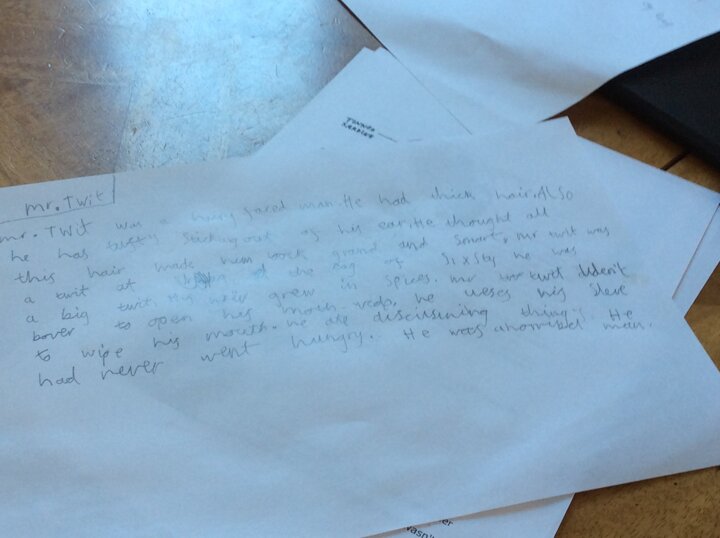 mr. Twit
mr. TWit was a hairy faced man. He had thick hair. Also
he has tufts sticking out of his ear. He thought all
this hair made him look grand and smart. mr twit was
a twit at of the of sixsty he was
a big twit. His hair grew in spices. mr twit
bover to open his mouth he useses his sleve
to wipe his mouth. he ate things. He
had never went hungry. He was ahorribel man.